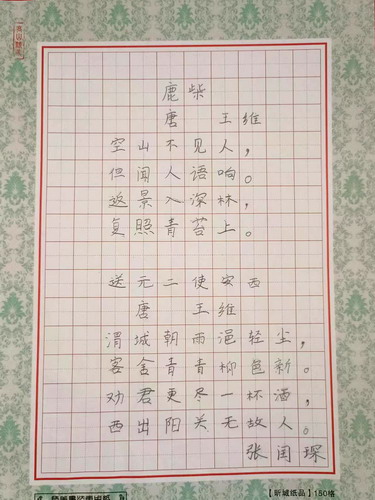 鹿柴
唐 王维
空山不见人，
但闻人语响。
返景入深林，
复照青苔上。
送元二使安西
唐 王维
渭城朝雨浥轻尘，
客舍青青柳色新。
劝君更尽一杯酒，
西出阳关无故人。
张闰琛
【新城纸品】150格